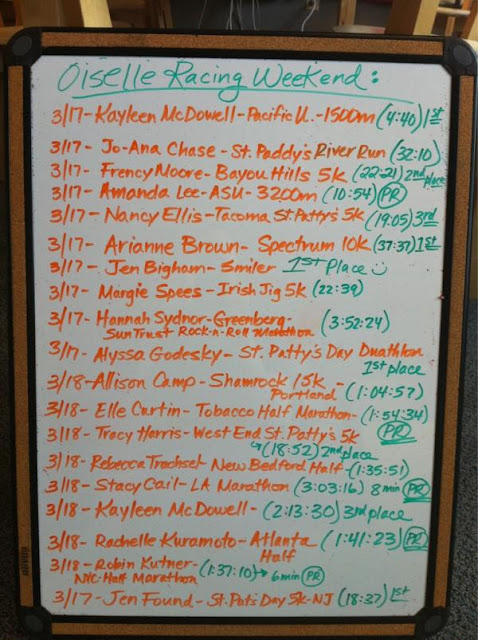 Oiselle Racing Weekend:
3/17- Kayleen McDowell- Pacific U.- 1500m (4:40) 1st
3/17- Jo-Ana Chase - St. Paddy's River Run (32:10)
3/17- Frency Moore- Bayou Hills 5k (22:21) 2nd place
3/17- Amanda Lee- ASU- 3200m (10:54) PR
3/17- Nancy Ellis- Tacoma St. Patty's 5k (19:05) 3rd
3/17- Arianne Brown- Spectrum 10k (37:37) 1st
3/17- Jen Bigham- Smiler 1st Place
3/17- Margie Spees - Irish Jig 5k (22:39)
3/17- Hannah Sydnor-Greenberg-
SunTrust Rock-n-Roll Marathon (3:52:24)
3/17- Alyssa Godesky- St. Patty's Day Duathlon
1st place
3/18- Allison Camp- Shamrock 15k -
Portland (1:04:57)
3/18- Elle Curtin- Tobacco Half Marathon- (1:54:34)
3/18- Tracy Harris- West End St. Patty's 5k PR
(18:52) 2nd place
3/18- Rebecca Trachsel New Bedford Half- (1:35:51)
3/18- Stacy Cail- LA Marathon (3:03:16) 8 min PR
3/18- Kayleen McDowell- (2:13:30) 3rd place
3/18- Rachelle Kuramoto- Atlanta (1:41:23) PR
Half
3/18- Robin Kutner-
NYC Half Marathon (1:37:10) 6 min PR
3/17- Jen Found- St. Pat's Day 5k-NJ (18:37) 1st